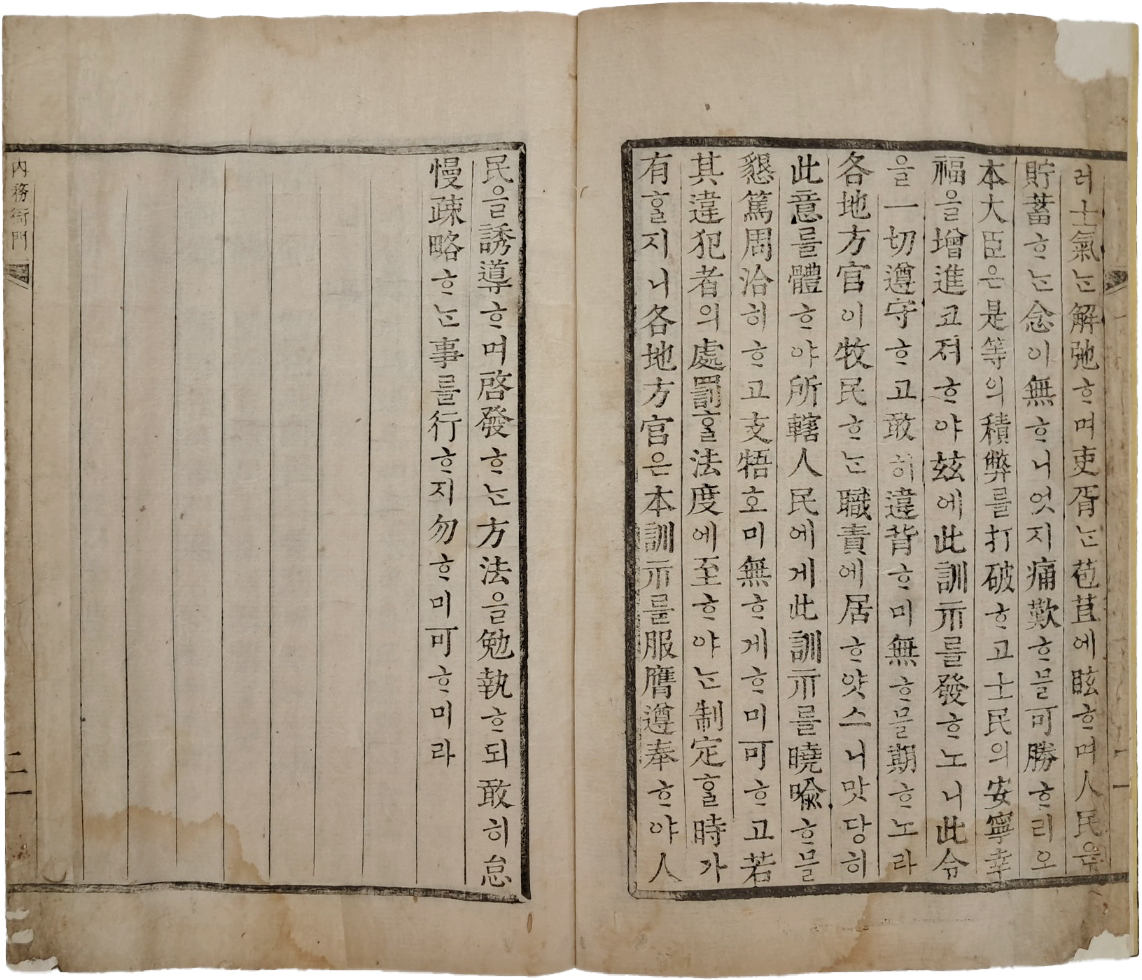 러士氣ᄂᆞᆫ解弛ᄒᆞ며吏胥ᄂᆞᆫ苞苴에眩ᄒᆞ며人民은
貯蓄ᄒᆞᄂᆞᆫ念이無ᄒᆞ니엇지痛歎ᄒᆞ믈可勝ᄒᆞ리오
本大臣은是等의積弊를打破ᄒᆞ고士民의安寧幸
福을增進코져ᄒᆞ야玆에此訓示를發ᄒᆞ노니此令
을一切遵守ᄒᆞ고敢히違背ᄒᆞ미無ᄒᆞ믈期ᄒᆞ노라
各地方官이牧民ᄒᆞᄂᆞᆫ職責에居ᄒᆞ얏스니맛당히
此意를體ᄒᆞ야所轄人民에게此訓示를曉喩ᄒᆞ믈
懇篤周洽히ᄒᆞ고支牾호미無ᄒᆞ게ᄒᆞ미可ᄒᆞ고若
其違犯者의處罰ᄒᆞᆯ法度에至ᄒᆞ야ᄂᆞᆫ制定ᄒᆞᆯ時가
有ᄒᆞᆯ지니各地方官은本訓示를服膺遵奉ᄒᆞ야人
民을誘導ᄒᆞ며啓發ᄒᆞᄂᆞᆫ方法을勉執ᄒᆞ되敢히怠
慢疎略ᄒᆞᄂᆞᆫ事를行ᄒᆞ지勿ᄒᆞ미可ᄒᆞ미라
內務衙門